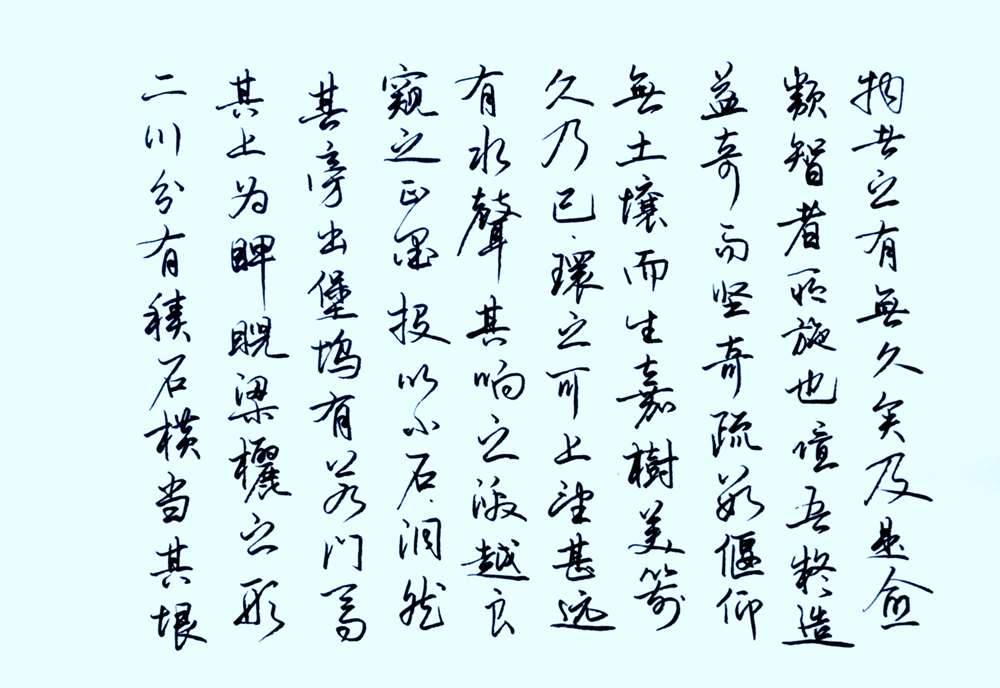 二川分有積石横当其垠
其上为睥睨梁欐之形
其旁出堡坞有若门焉
窺之正黑投以小石洞然
有水聲其响之激越良
久乃已環之可上望甚远
無土壤而生嘉樹美箭
益奇而坚奇疏数偃仰
類智者所施也噫吾疑造
物者之有無久矣及是愈